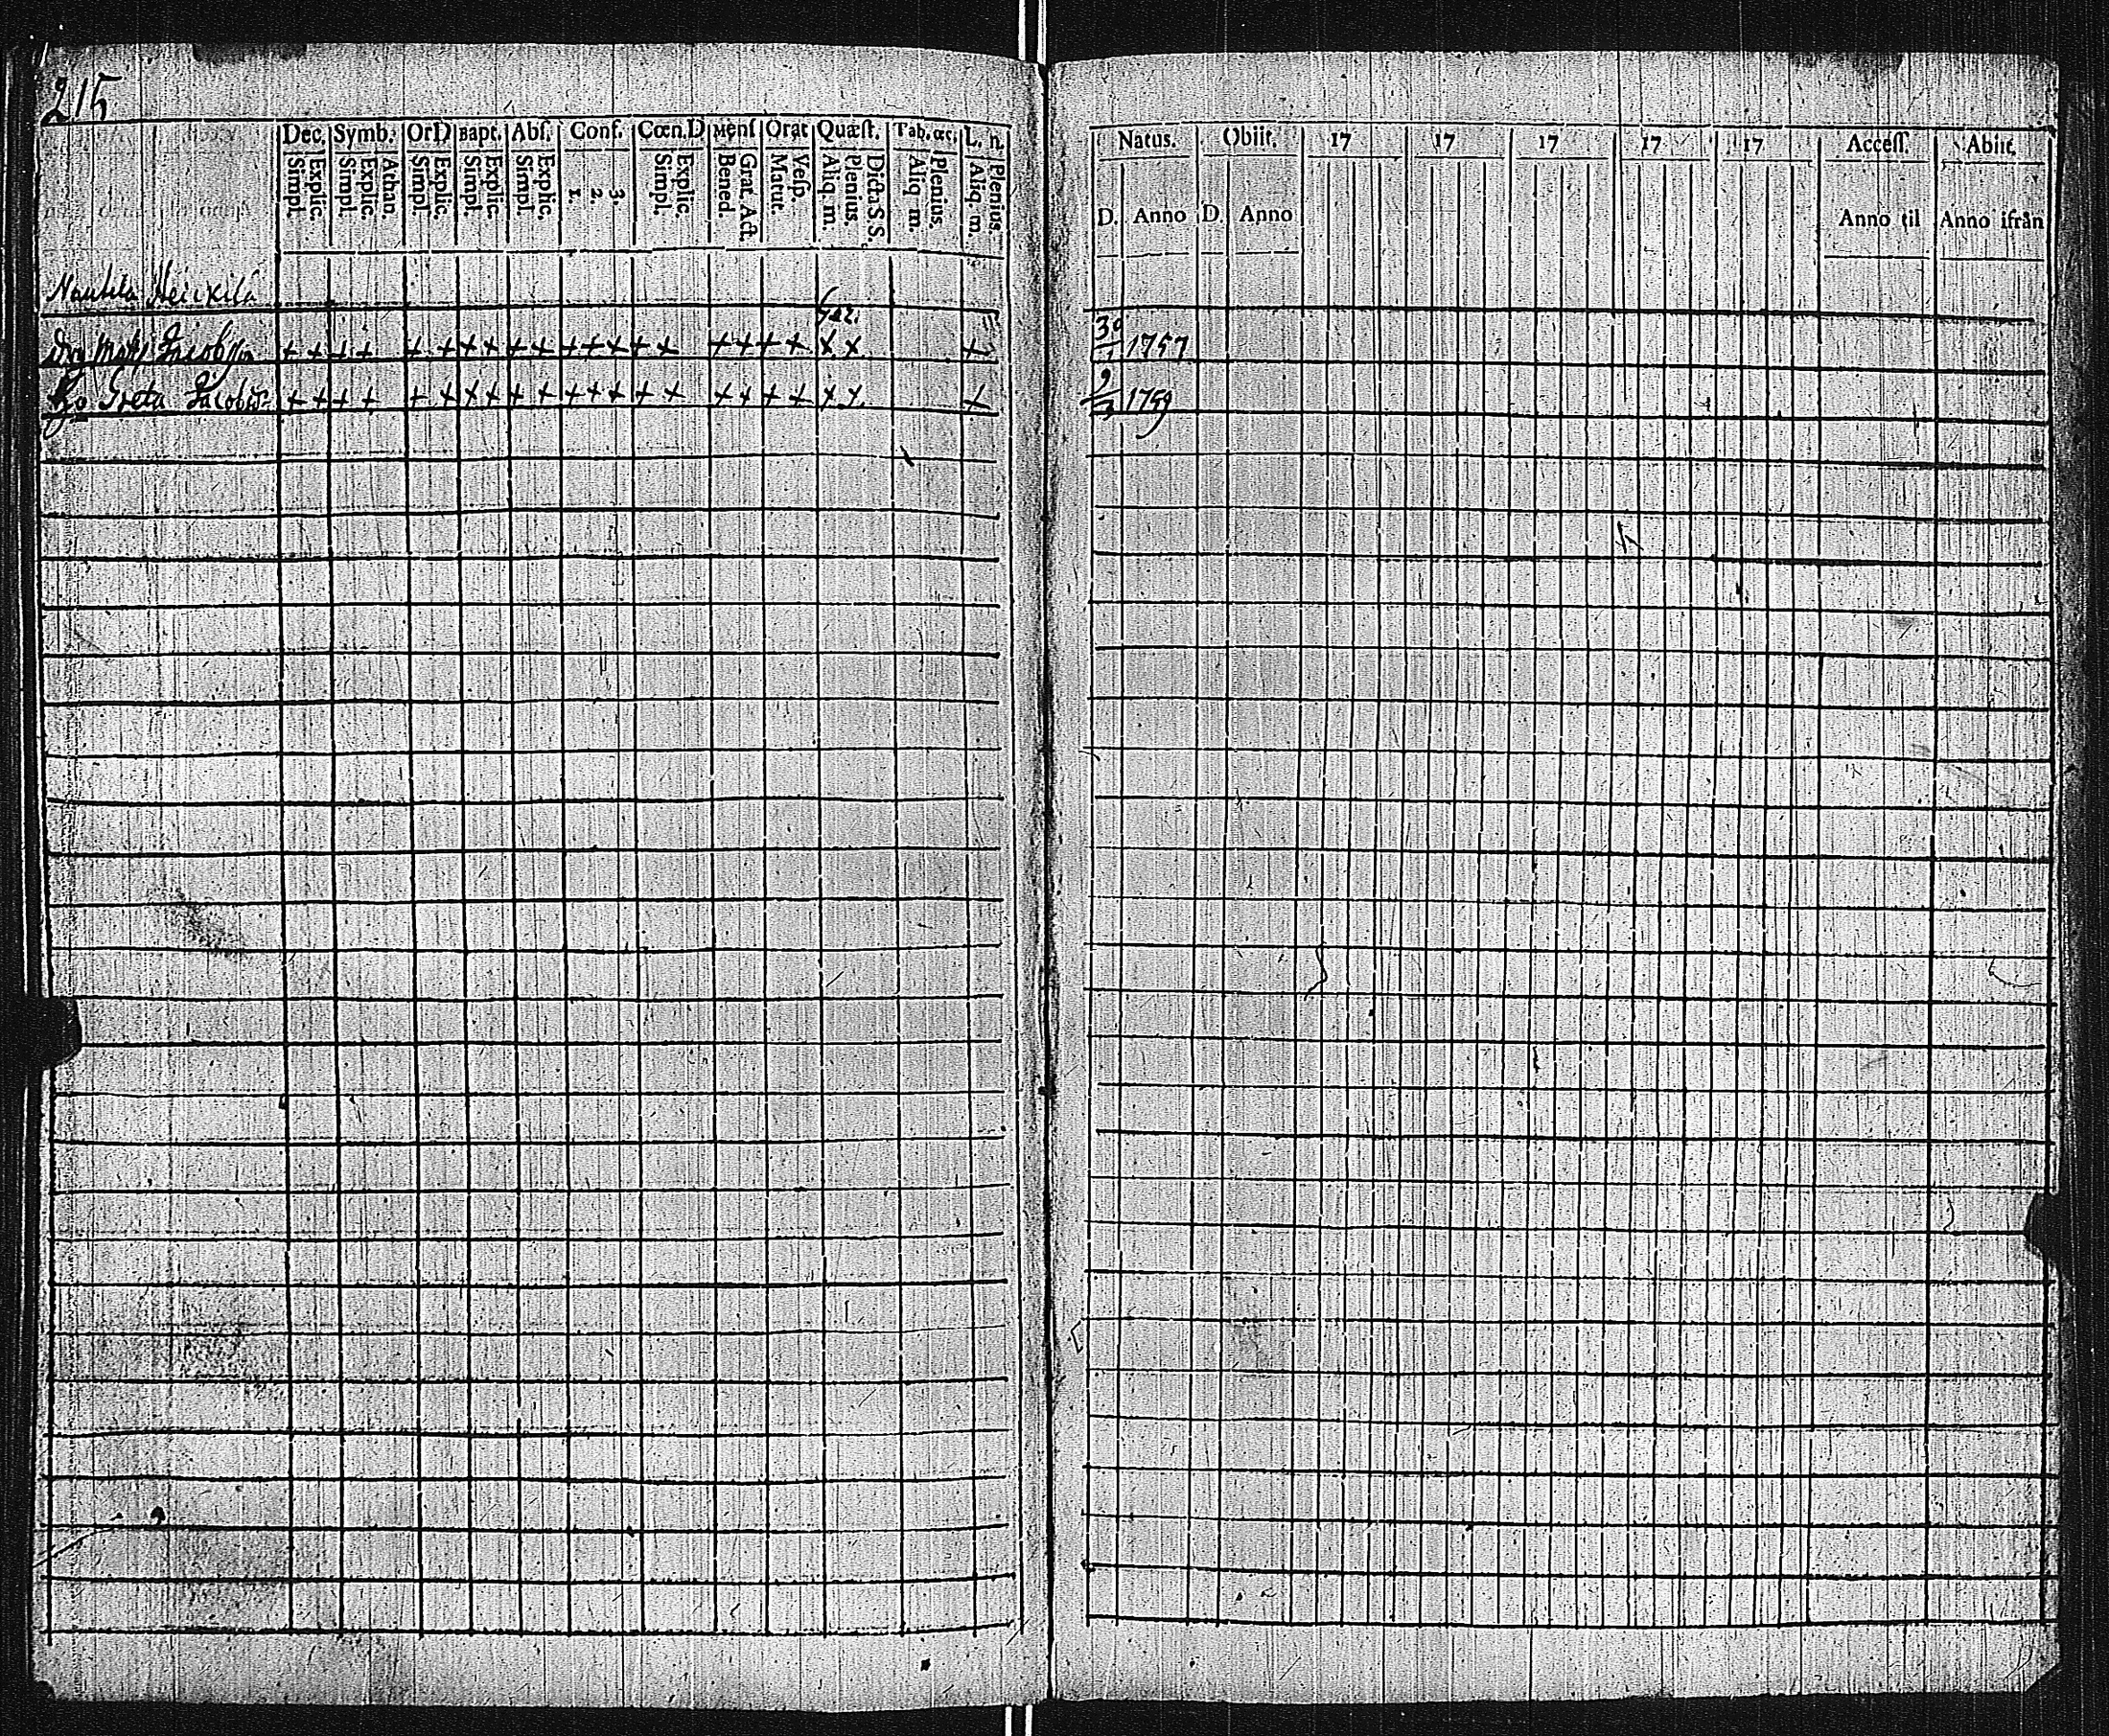 215
Dec. Symb. OrD Bapt. Abſ. Conf. Cœn.D Menſ Orat Quæſt. Tab. œc. L. n.
Simpl. Explic. Simpl. Explic. Athan. Simpl. Explic. Simpl. Explic. Simpl. Explic. 1. 2. 3. Simpl. Explic. Bened. Grat. Act. Matut. Veſp. Aliq m. Plenius. Dicta S S. Aliq m. Plenius. Aliq. m. Plenius.
Natus. Obiit. 17 17 17 17 17 Acceſſ. Abiit.
D. Anno D. Anno Anno til Anno ifrån
Heickilä
Jacobsson + + + + + + + + + + + + + + + + + + + x x + 30 1757
Greta + + + + + + + + + + + + + + + + + + + x x + 9 1759